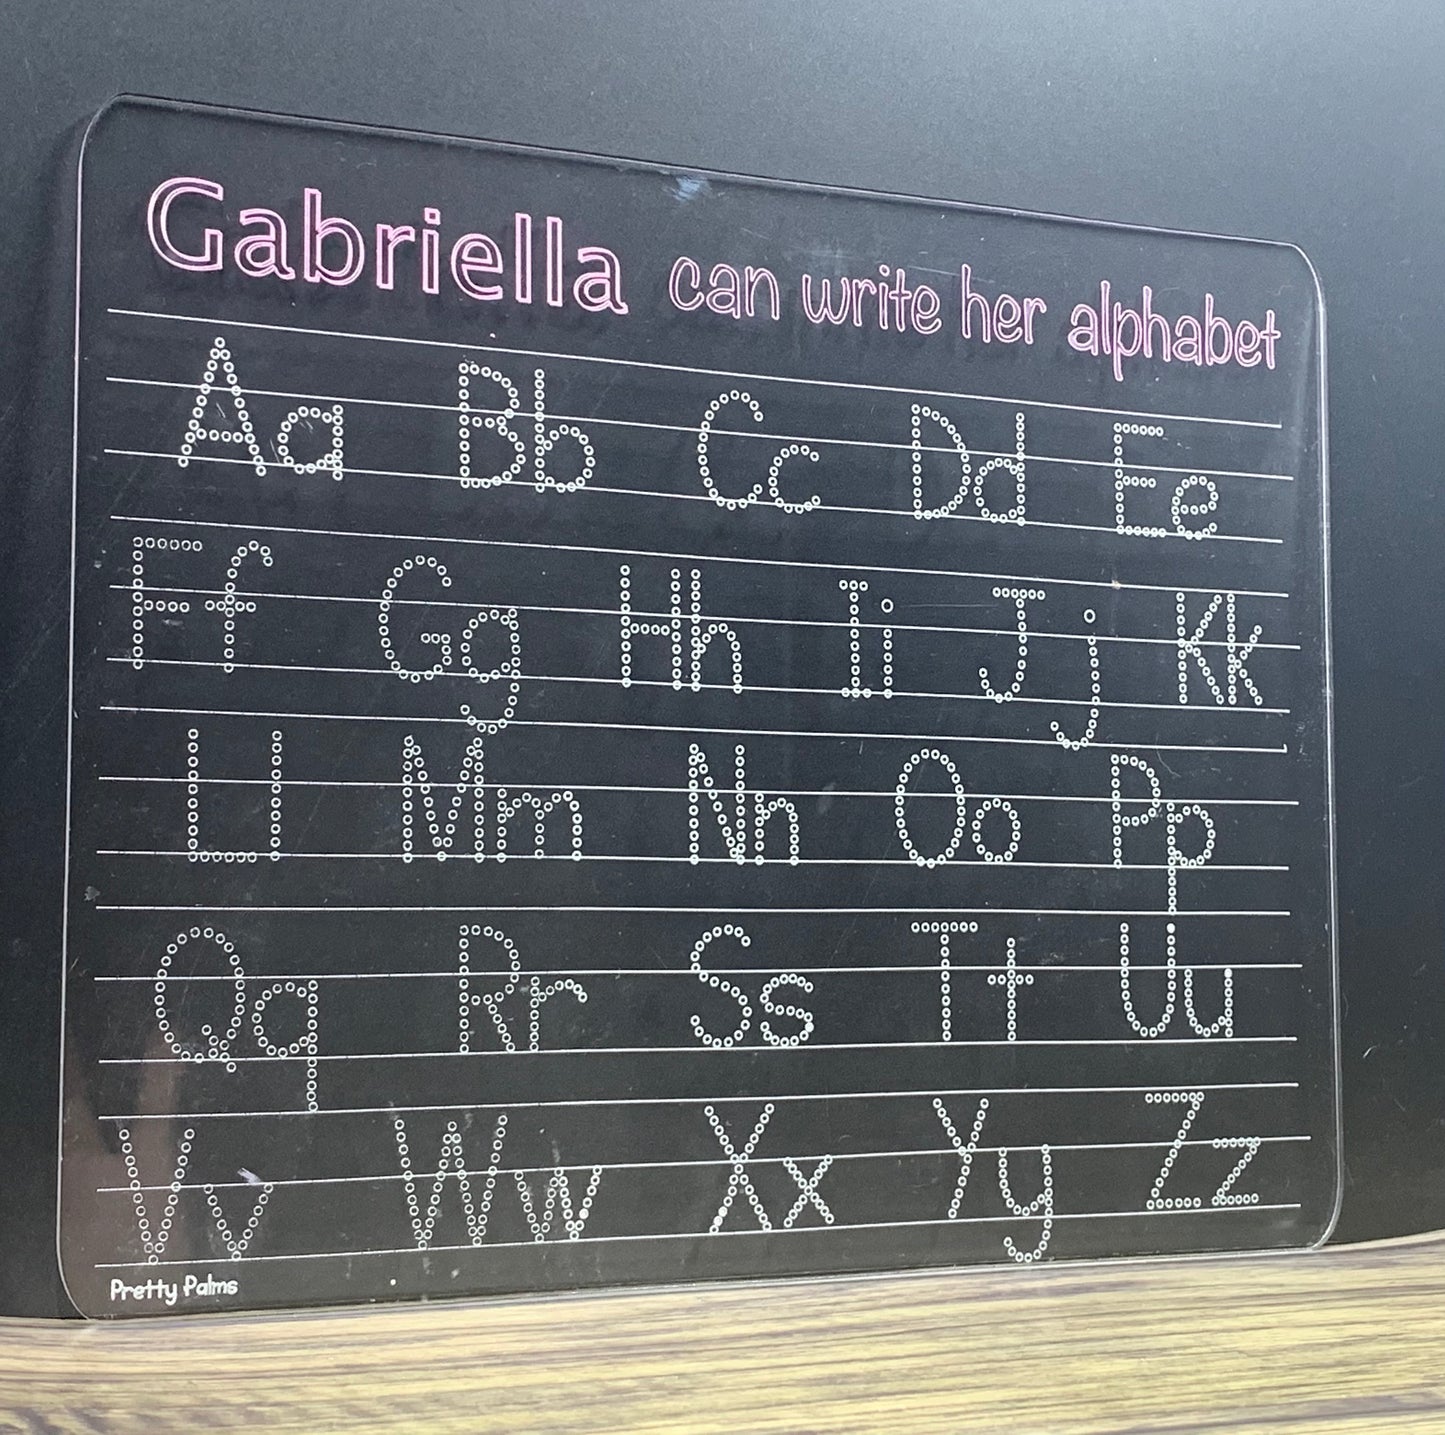 Gabriella can write her alphabet
Aa Bb Cc Dd Ee
Ff Gg Hh Ii Jj Kk
Ll Mm Nn Oo Pp
Qq Rr Ss Tt Uu
Vv Ww Xx Yy Zz
Pretty Palms